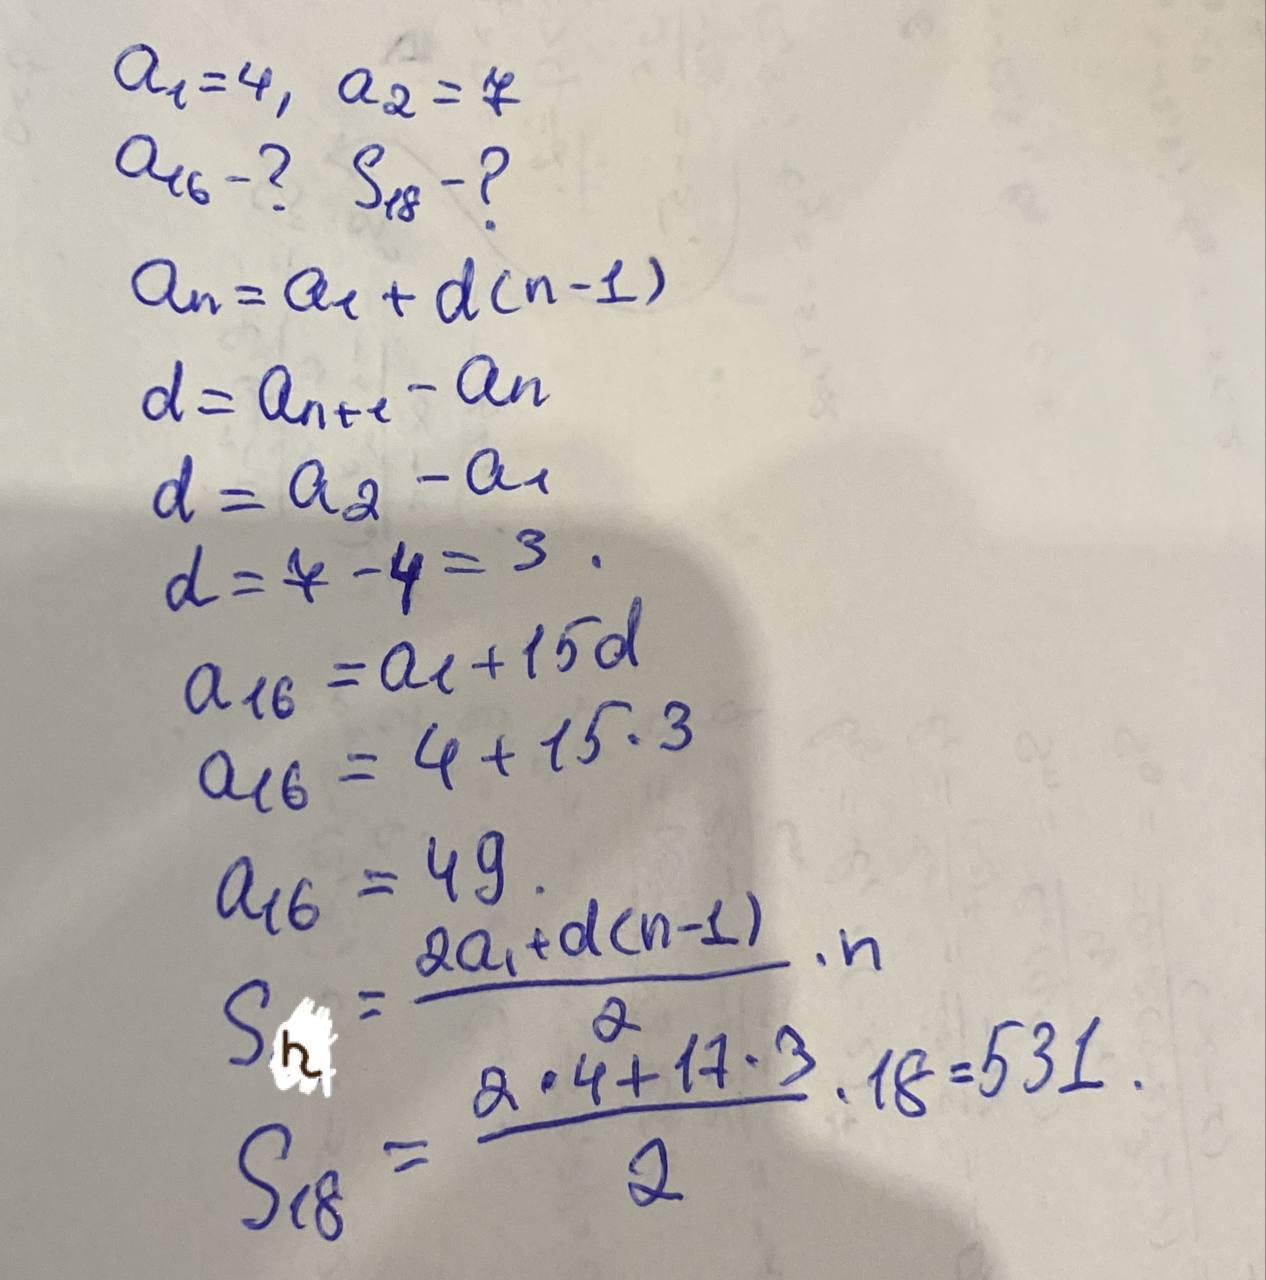 a₁=4, a₂=7
a₁₆-? S₁₈-?
aₙ=a₁+d(n-1)
d=aₙ₊₁-aₙ
d=a₂-a₁
d=7-4=3.
a₁₆=a₁+15d
a₁₆=4+15·3
a₁₆=49.
Sₙ=(2a₁+d(n-1))/2·n
S₁₈=(2·4+17·3)/2·18=531.